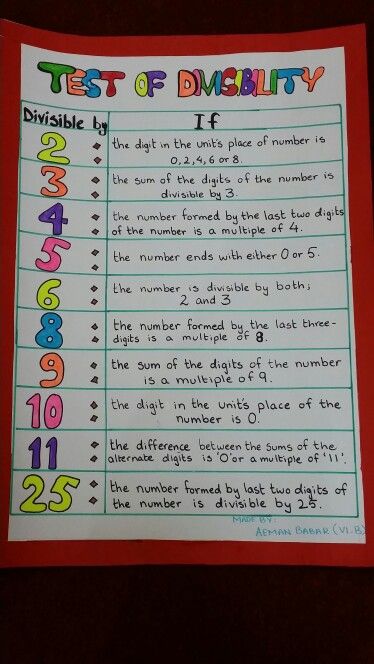 TEST OF DIVISIBILITY
Divisible by If
2 the digit in the unit's place of number is
0,2,4,6 or 8.
3 the sum of the digits of the number is
divisible by 3.
4 the number formed by the last two digits
of the number is a multiple of 4.
5 the number ends with either 0 or 5.
6 the number is divisible by both;
2 and 3
8 the number formed by the last three-
digits is a multiple of 8.
9 the sum of the digits of the number
is a multiple of 9.
10 the digit in the unit's place of the
number is 0.
11 the difference between the sums of the
alternate digits is '0' or a multiple of '11'.
25 the number formed by last two digits of
the number is divisible by 25.
MADE BY:
AEMAN BABAR (VI.B)